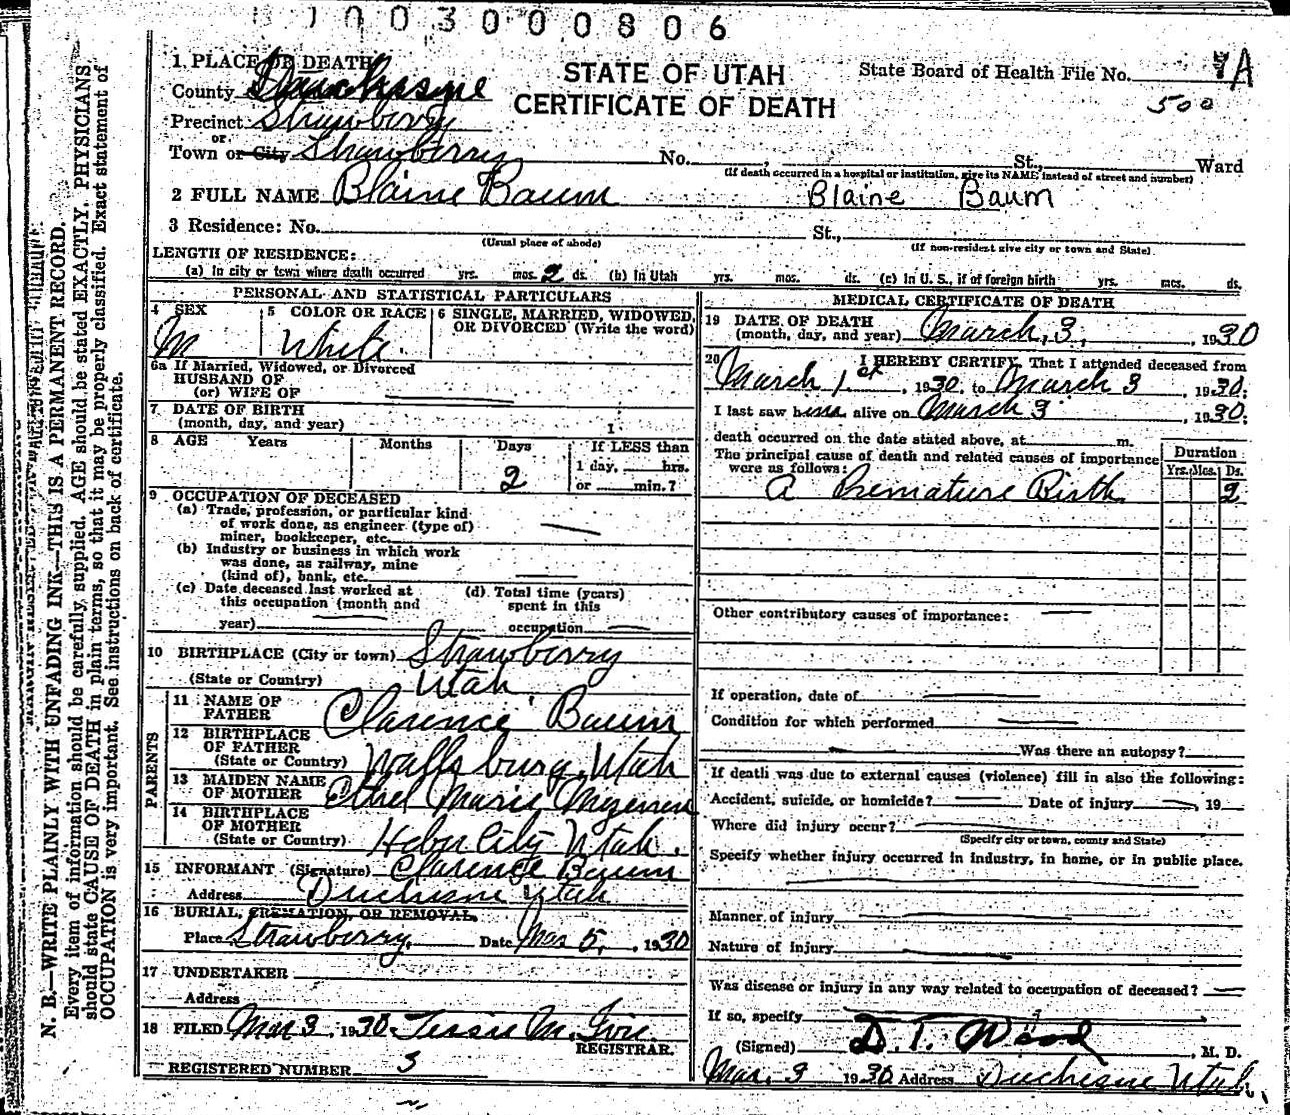 1003000806
1 PLACE OF DEATH
STATE OF UTAH
CERTIFICATE OF DEATH
State Board of Health File No. 7A
500
County Duchesne
Precinct Strawberry
or
Town or City Strawberry No. , St., Ward
(If death occurred in a hospital or institution, give its NAME instead of street and number)
2 FULL NAME Blaine Baum Blaine Baum
3 Residence: No. St.,
(Usual place of abode) (If non-resident give city or town and State)
LENGTH OF RESIDENCE:
(a) In city or town where death occurred yrs. mos. 2 ds. (b) In Utah yrs. mos. ds. (c) In U. S., if of foreign birth yrs. mos. ds.
PERSONAL AND STATISTICAL PARTICULARS
4 SEX 5 COLOR OR RACE 6 SINGLE, MARRIED, WIDOWED,
OR DIVORCED (Write the word)
M White
6a If Married, Widowed, or Divorced
HUSBAND OF
(or) WIFE OF
7 DATE OF BIRTH
(month, day, and year)
8 AGE Years Months Days If LESS than
1 day, hrs.
2 or min.?
9 OCCUPATION OF DECEASED
(a) Trade, profession, or particular kind
of work done, as engineer (type of)
miner, bookkeeper, etc.
(b) Industry or business in which work
was done, as railway, mine
(kind of), bank, etc.
(c) Date deceased last worked at
this occupation (month and
year)
(d) Total time (years)
spent in this
occupation
10 BIRTHPLACE (City or town) Strawberry
(State or Country) Utah
PARENTS
11 NAME OF
FATHER Clarence Baum
12 BIRTHPLACE
OF FATHER
(State or Country) Wallsburg, Utah
13 MAIDEN NAME
OF MOTHER Ethel Marie
14 BIRTHPLACE
OF MOTHER
(State or Country) Heber City Utah.
15 INFORMANT (Signature) Clarence Baum
Address Duchesne Utah
16 BURIAL, CREMATION, OR REMOVAL,
Place Strawberry, Date Mar 5, 1930
17 UNDERTAKER
Address
18 FILED Mar 3 1930 Tessie M. Ivie
REGISTRAR.
REGISTERED NUMBER 3
MEDICAL CERTIFICATE OF DEATH
19 DATE OF DEATH
(month, day, and year) March, 3, , 1930
20 I HEREBY CERTIFY, That I attended deceased from
March 1st , 1930 to March 3 , 1930;
I last saw him alive on March 3 , 1930;
death occurred on the date stated above, at m.
The principal cause of death and related causes of importance
were as follows:
Duration
Yrs. Mos. Ds.
A Premature Birth 2
Other contributory causes of importance:
If operation, date of
Condition for which performed
Was there an autopsy?
If death was due to external causes (violence) fill in also the following:
Accident, suicide, or homicide? Date of injury , 19
Where did injury occur?
(Specify city or town, county and State)
Specify whether injury occurred in industry, in home, or in public place.
Manner of injury
Nature of injury
Was disease or injury in any way related to occupation of deceased?
If so, specify
(Signed) D. T. Wood , M. D.
Mar. 3 1930 Address Duchesne Utah.
N. B.—WRITE PLAINLY WITH UNFADING INK—THIS IS A PERMANENT RECORD.
Every item of information should be carefully supplied. AGE should be stated EXACTLY. PHYSICIANS
should state CAUSE OF DEATH in plain terms, so that it may be properly classified. Exact statement of
OCCUPATION is very important. See instructions on back of certificate.